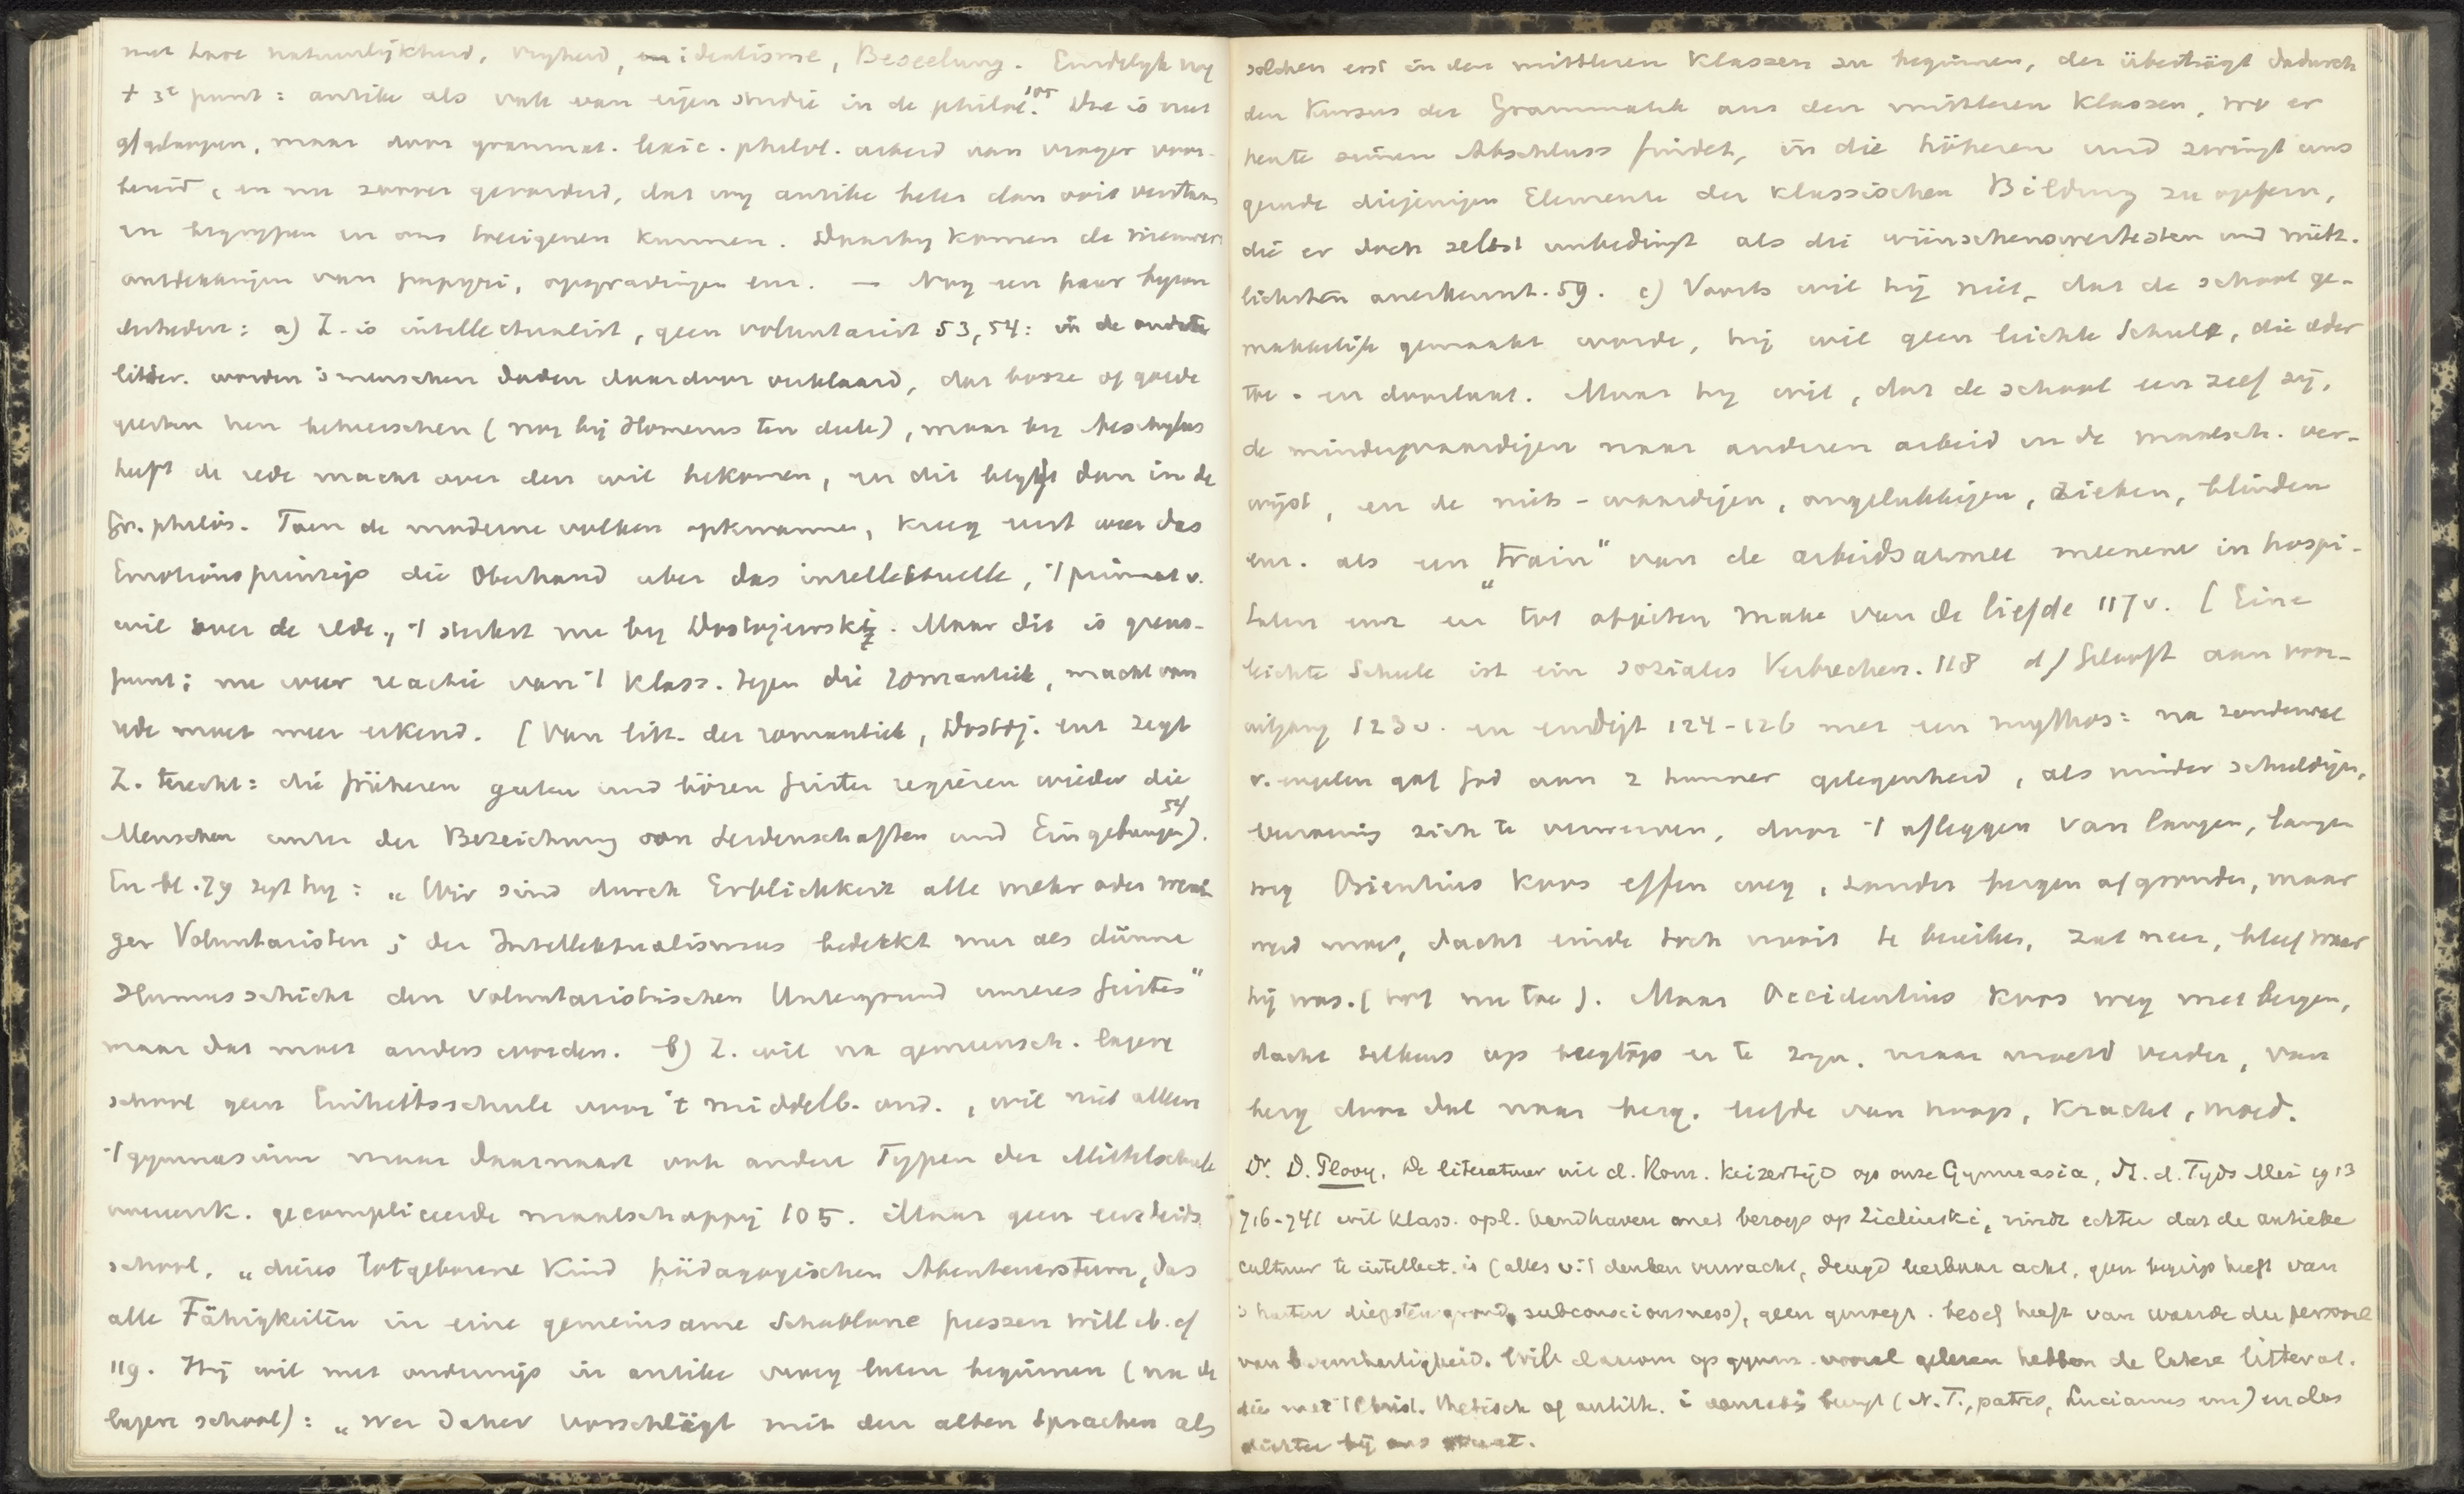 met hare natuurlijkheid, vrijheid, idealisme, Beseelung. Eindelyk nog
't 3e punt: antike als vak van eigen studie in de philol. 105 Die is niet
afgelopen, maar door grammat. lexic. philol. arbeid van vroeger voor-
bereid, en nu zoover gevorderd, dat wij antike beter dan ooit verstaan
en begrypen en ons toeeigenen kunnen. Daarby komen de nieuwere
ontdekkingen van papyri, opgravingen enz. — Nog een paar byzon
derheden: a) Z. is intellectualist, geen voluntarist 53, 54: in de oudste
litter. worden 's menschen daden daardoor verklaard, dat booze of goede
geesten hen beheerschen (nog bij Homerus ten deele), maar by Aeschylus
heeft de rede macht over den wil bekomen, en dit blyft dan in de
Gr. philos. Toen de moderne volken opkwamen, kreeg eerst weer das
Emotionsprinzip die Oberhand uber das intellektuelle, 't primaat v.
wil over de rede, 't sterkst nu by Dostojewski. Maar dit is grens-
punt; nu weer reactie van 't klass. tegen die romantiek, macht van
rede moet weer erkend. [Van litt. der romantiek, Dostoj. enz zegt
Z. terecht: die früheren guten und bösen Geister regieren wieder die
Menschen unter der Bezeichnung von Leidenschaften und Eingebungen 54).
En bl. 79 zegt hy: „Wir sind durch Erblichkeit alle mehr oder weni
ger Voluntaristen; der Intellektualismus bedekkt nur als dünne
Humusschicht den voluntaristischen Untergrund unseres Geistes"
maar dat moet anders worden. b) Z. wil na gemeensch. lagere
school geen Einheitsschule voor 't middelb. ond., wil niet alleen
't gymnasium maar daarnaast ook andere Typen der Mittelschule
vanwege gecompliceerde maatschappij 105. Maar geen eenheids
school, „dieses totgeborene Kind pädagogischen Abenteuerstums, das
alle Fähigkeiten in eine gemeinsame Schablone pressen will ib. cf
119. Hij wil met onderwijs in antike vroeg laten beginnen (na de
lagere school): „wer daher vorschlägt mit den alten Sprachen als
solchen erst in den mittleren Klassen zu beginnen, der überträgt dadurch
den Kursus der Grammatik aus den mittleren Klassen, wo er
heute seinen Abschluss findet, in die höheren und zwingt uns
gerade diejenigen Elemente der klassischen Bildung zu opfern,
die er doch selbst unbedingt als die wünschenswertesten und nütz-
lichsten anerkennt. 59. c) Voorts wil hij niet, dat de school ge-
makkelijk gemaakt worde, hij wil geen leichte Schule, die ieder
toe- en doorlaat. Maar hij wil, dat de school een zeef zij,
de minderwaardigen naar anderen arbeid in de maatsch. ver-
wijst, en de niets-waardigen, ongelukkigen, zieken, blinden
enz. als een „train" van de arbeidsarmee meenene in hospi-
talen enz en tot objecten make van de liefde 117 v. [Eine
leichte Schule ist ein soziales Verbrechen. 118 d) Gelooft aan voor-
uitgang 123 v. en eindigt 124-126 met een mythos: na zondenval
v. engelen gaf God aan 2 hunner gelegenheid, als minder schuldigen,
van langen, langen
weg Orientius koos effen weg, zonder bergen afgronden, maar
werd moe, dacht einde toch nooit te bereiken, zat neer, bleef waar
hij was. (tot nu toe). Maar Occidentius koos weg met bergen,
dacht telkens op bergtop er te zyn, maar moest verder, van
berg door dal naar berg. leefde van hoop, kracht, moed.
Dr. D. Plooy, De literatuur uit d. Rom. keizertijd op onze Gymnasia, St. d. Tyds Mei 1913
716-741 wil klass. opl. handhaven met beroep op Zielinski, vindt echter dat de antieke
cultuur te intellect. is (alles v. 't denken verwacht, deugd leerbaar acht, geen begrip heeft van
's harten diepsten grond, subconsciousness), geen genoegz. besef heeft van waarde der persoonl
van barmhartigheid. Wil daarom op gymn. vooral gelezen hebben de latere litterat.
die met 't Christ. (N.T., patres, Lucianus enz) en dus
dichter bij ons staat.